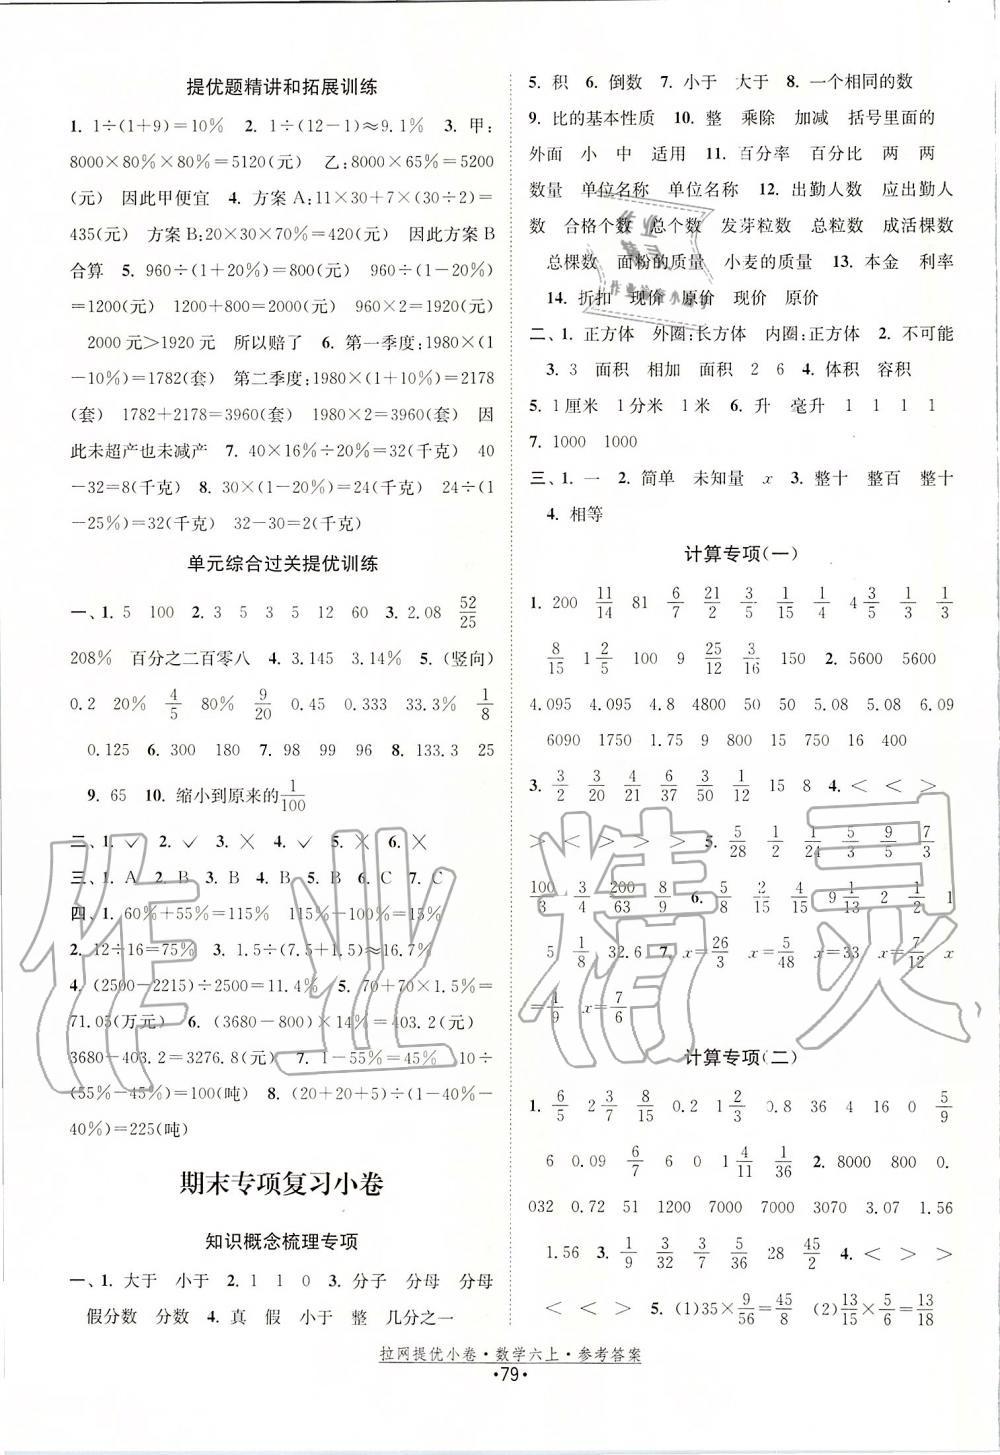 提优题精讲和拓展训练
1. 1÷(1+9)=10%  2. 1÷(12-1)≈9.1%  3. 甲:
8000×80%×80%=5120(元)  乙:8000×65%=5200
(元)  因此甲便宜  4. 方案 A:11×30+7×(30÷2)=
435(元)  方案 B:20×30×70%=420(元)  因此方案 B
合算  5. 960÷(1+20%)=800(元)  960÷(1-20%)
=1200(元)  1200+800=2000(元)  960×2=1920(元)
2000 元>1920 元  所以赔了  6. 第一季度:1980×(1
-10%)=1782(套)  第二季度:1980×(1+10%)=2178
(套)  1782+2178=3960(套)  1980×2=3960(套)  因
此未超产也未减产  7. 40×16%÷20%=32(千克)  40
-32=8(千克)  8. 30×(1-20%)=24(千克)  24÷(1
-25%)=32(千克)  32-30=2(千克)
单元综合过关提优训练
一、1. 5  100  2. 3  5  3  5  12  60  3. 2.08  52/25
208%  百分之二百零八  4. 3.145  3.14%  5. (竖向)
0.2  20%  4/5  80%  9/20  0.45  0.333  33.3%  1/8
0.125  6. 300  180  7. 98  99  96  8. 133.3  25
9. 65  10. 缩小到原来的1/100
二、1. ✓  2. ✓  3. ×  4. ✓  5. ×  6. ×
三、1. A  2. B  3. B  4. B  5. B  6. C  7. C
四、1. 60%+55%=115%  115%-100%=15%
2. 12÷16=75%  3. 1.5÷(7.5+1.5)≈16.7%
4. (2500-2215)÷2500=11.4%  5. 70+70×1.5%=
71.05(万元)  6. (3680-800)×14%=403.2(元)
3680-403.2=3276.8(元)  7. 1-55%=45%  10÷
(55%-45%)=100(吨)  8. (20+20+5)÷(1-40%-
40%)=225(吨)
期末专项复习小卷
知识概念梳理专项
一、1. 大于  小于  2. 1  1  0  3. 分子  分母  分母
假分数  分数  4. 真  假  小于  整  几分之一
5. 积  6. 倒数  7. 小于  大于  8. 一个相同的数
9. 比的基本性质  10. 整  乘除  加减  括号里面的
外面  小  中  适用  11. 百分率  百分比  两  两
数量  单位名称  单位名称  12. 出勤人数  应出勤人
数  合格个数  总个数  发芽粒数  总粒数  成活棵数
总棵数  面粉的质量  小麦的质量  13. 本金  利率
14. 折扣  现价  原价  现价  原价
二、1. 正方体  外圈:长方体  内圈:正方体  2. 不可能
3. 3  面积  相加  面积  2  6  4. 体积  容积
5. 1厘米  1分米  1米  6. 升  毫升  1  1  1  1
7. 1000  1000
三、1. 一  2. 简单  未知量  x  3. 整十  整百  整十
4. 相等
计算专项(一)
1. 200  11/14  81  6/7  21/2  3/5  1/15  1/4  4 3/5  1/3  1/3
8/15  1 2/5  100  9  25/12  3/16  150  2. 5600  5600
4.095  4.095  4.8  4800  50  50  5.08  5.08  6.09
6090  1750  1.75  9  800  15  750  16  400
3. 3/2  3/20  4/21  6/37  3/50  1/12  15  8  4. <  <  >
>  <  >  >  >  5. 5/28  1/2  1/24  5/3  9/5  7/3
100/3  3/4  200/63  8/9  6. 5/8  2/15  4/15  9 1/13  2  1/2  1
5  1/8  32.6  7. x=26/3  x=5/48  x=33  x=7/12  x
=1/9  x=7/6
计算专项(二)
1. 6/5  2 3/7  8/15  0.2  1 2/3  0.8  36  4  16  0  5/9
6  0.09  6/7  6  0  1 4/11  1/36  2. 8000  800  0.
032  0.72  51  1200  7000  7000  3070  3.07  1.56
1.56  3. 1/9  3/32  3/77  5/36  28  45/2  4. <  >  >
<  <  >  5. (1)35×9/56=45/8  (2)13/15×5/6=13/18
拉网提优小卷·数学六上·参考答案
·79·
作业精灵